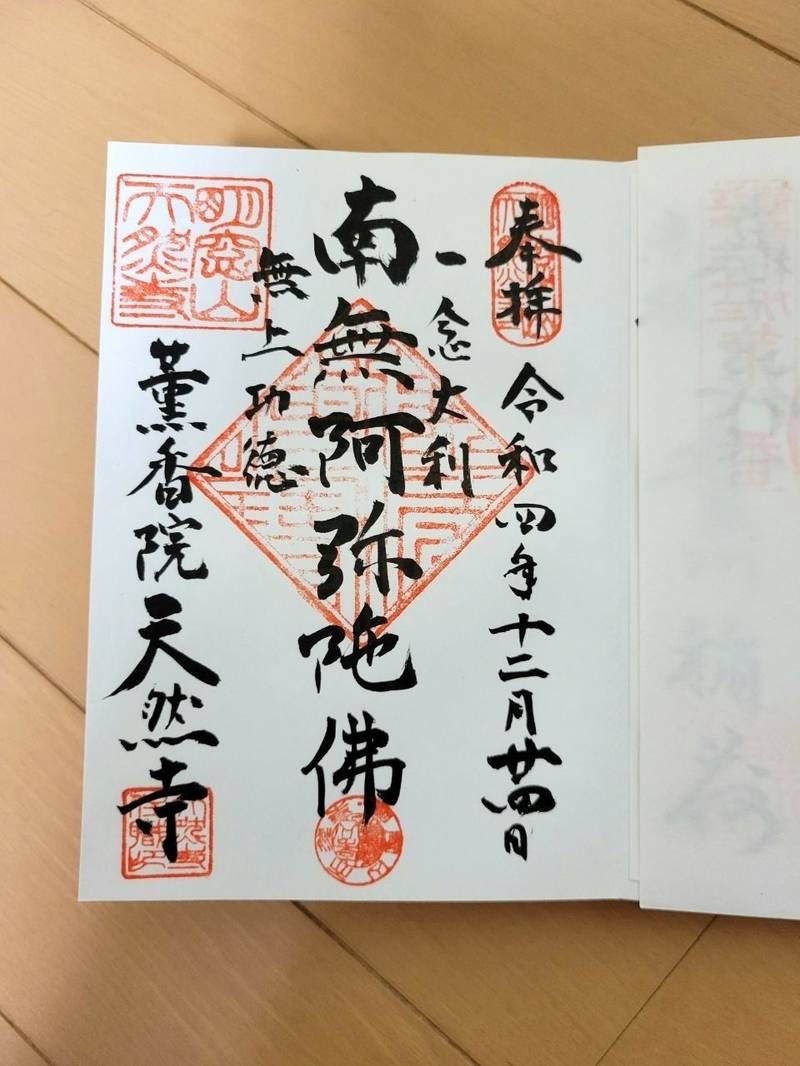 奉拝
令和四年十二月廿四日
一念大利
南無阿弥陀佛
無上功徳
薫香院天然寺
明窓山
天然寺